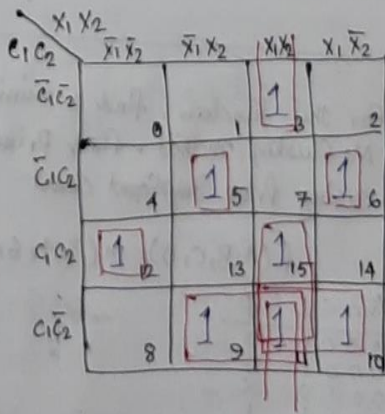 X₁ X₂
C₁ C₂
X̄₁ X̄₂ X̄₁ X₂ X₁ X₂ X₁ X̄₂
C̄₁ C̄₂ 0 1 1 3 2
C̄₁ C₂ 4 1 5 7 1 6
C₁ C₂ 1 12 13 1 15 14
C₁ C̄₂ 8 1 9 1 1 10